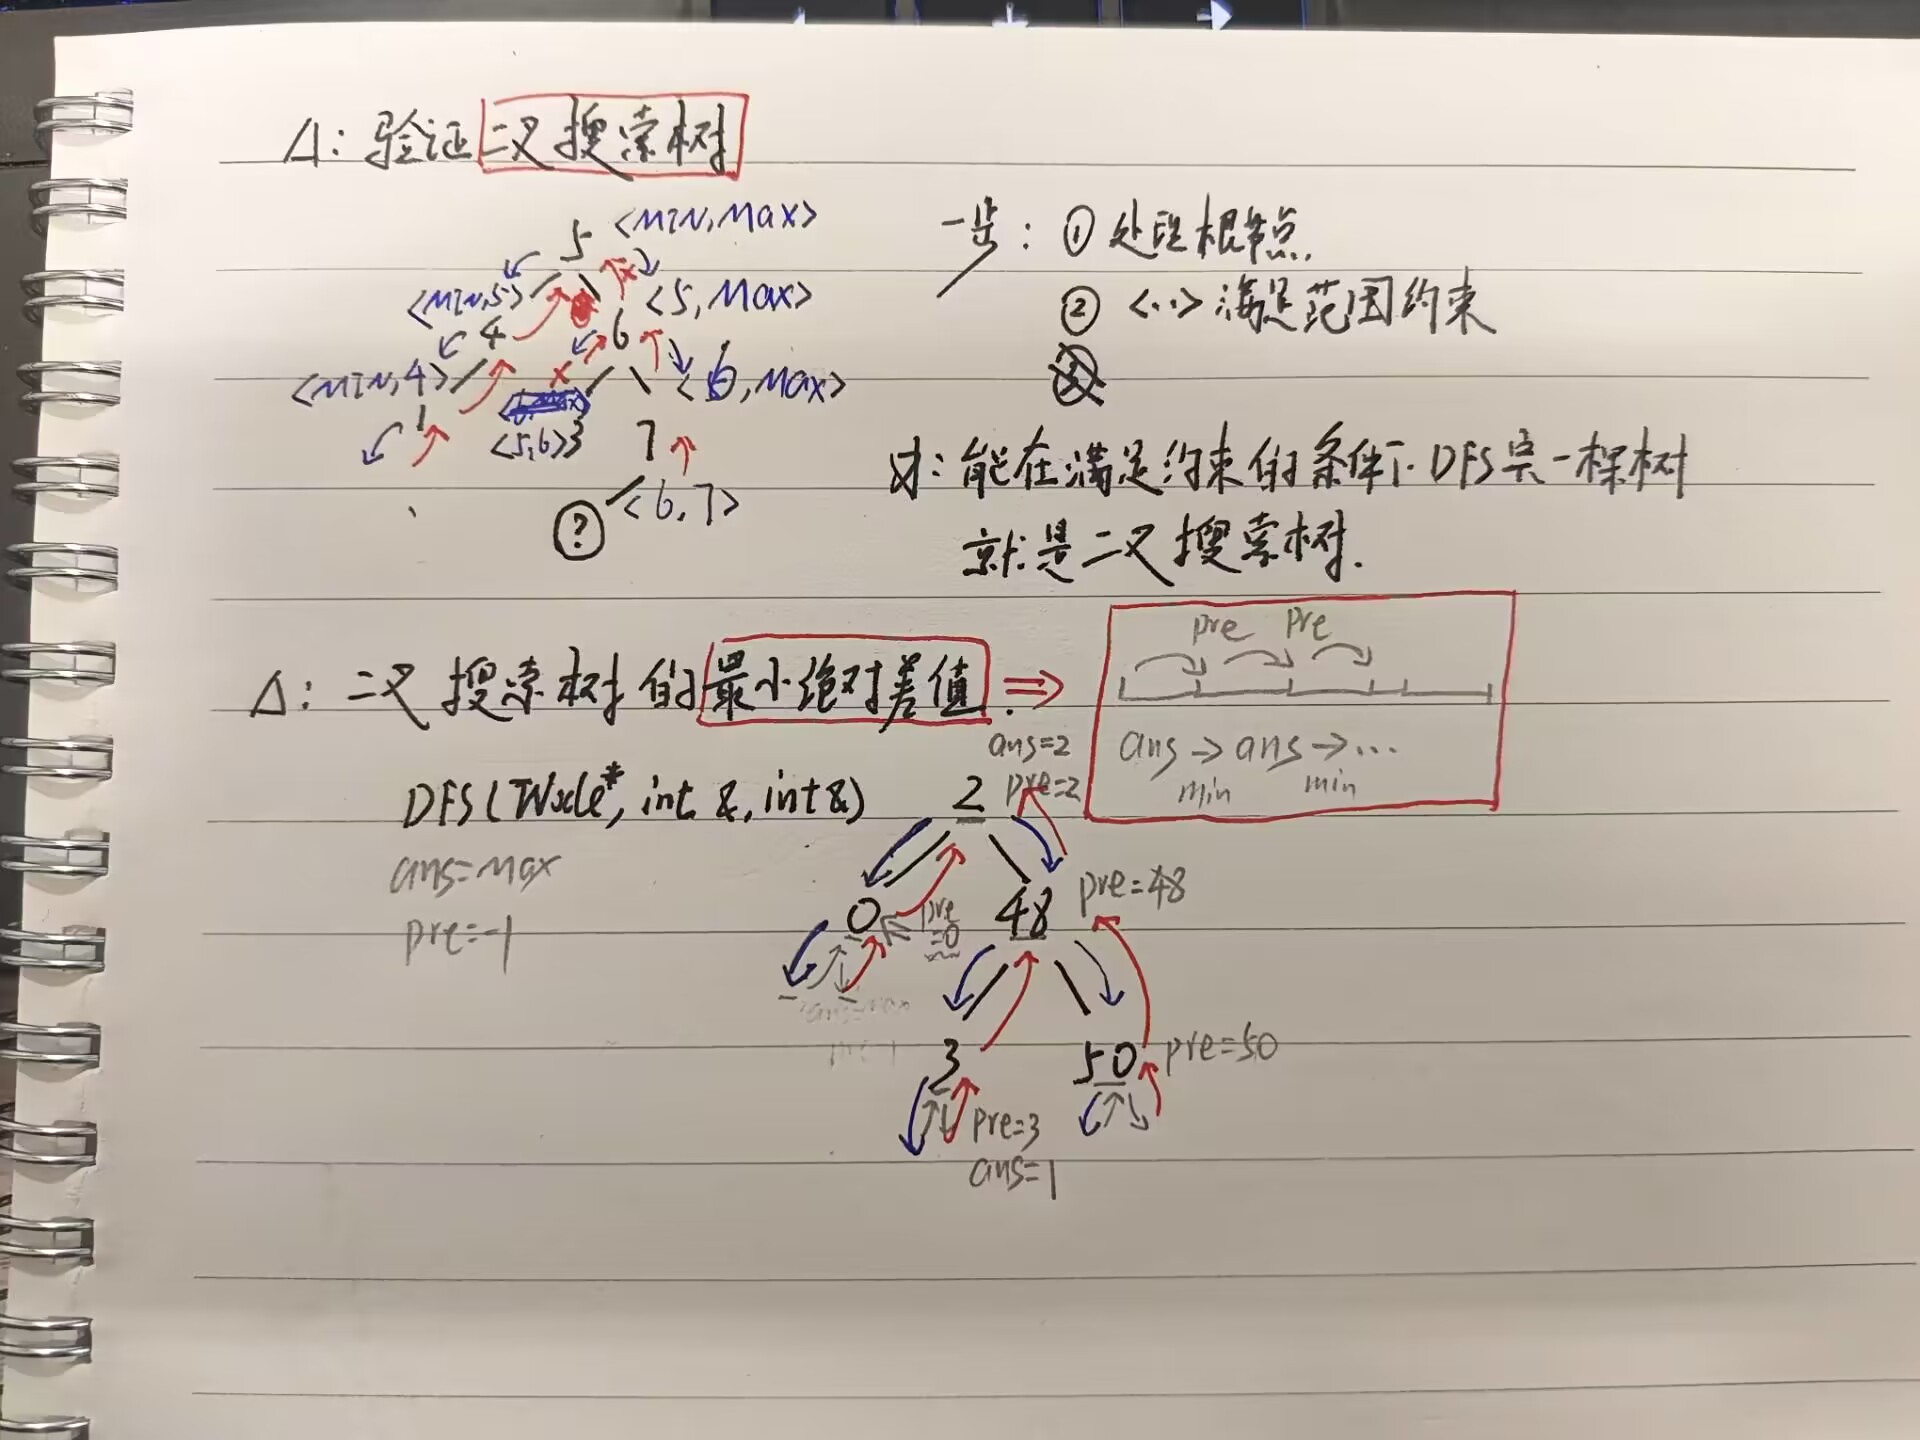 Δ: 验证二叉搜索树
5 <MIN, Max>
<MIN,5> <5, Max>
4 6
<MIN,4> <6, Max>
1 <5,6>3 7
? <6,7>
一步: ① 处理根节点.
② <..> 满足范围约束
对: 能在满足约束的条件下DFS完一棵树
就是二叉搜索树.
Δ: 二叉搜索树的最小绝对差值. ⇒
pre pre
ans → ans → ...
min min
DFS(TNode*, int &, int &)
ans=Max
pre=-1
ans=2
2 pre=2
0 pre=0 48 pre=48
ans=max
3 50 pre=50
pre=3
ans=1